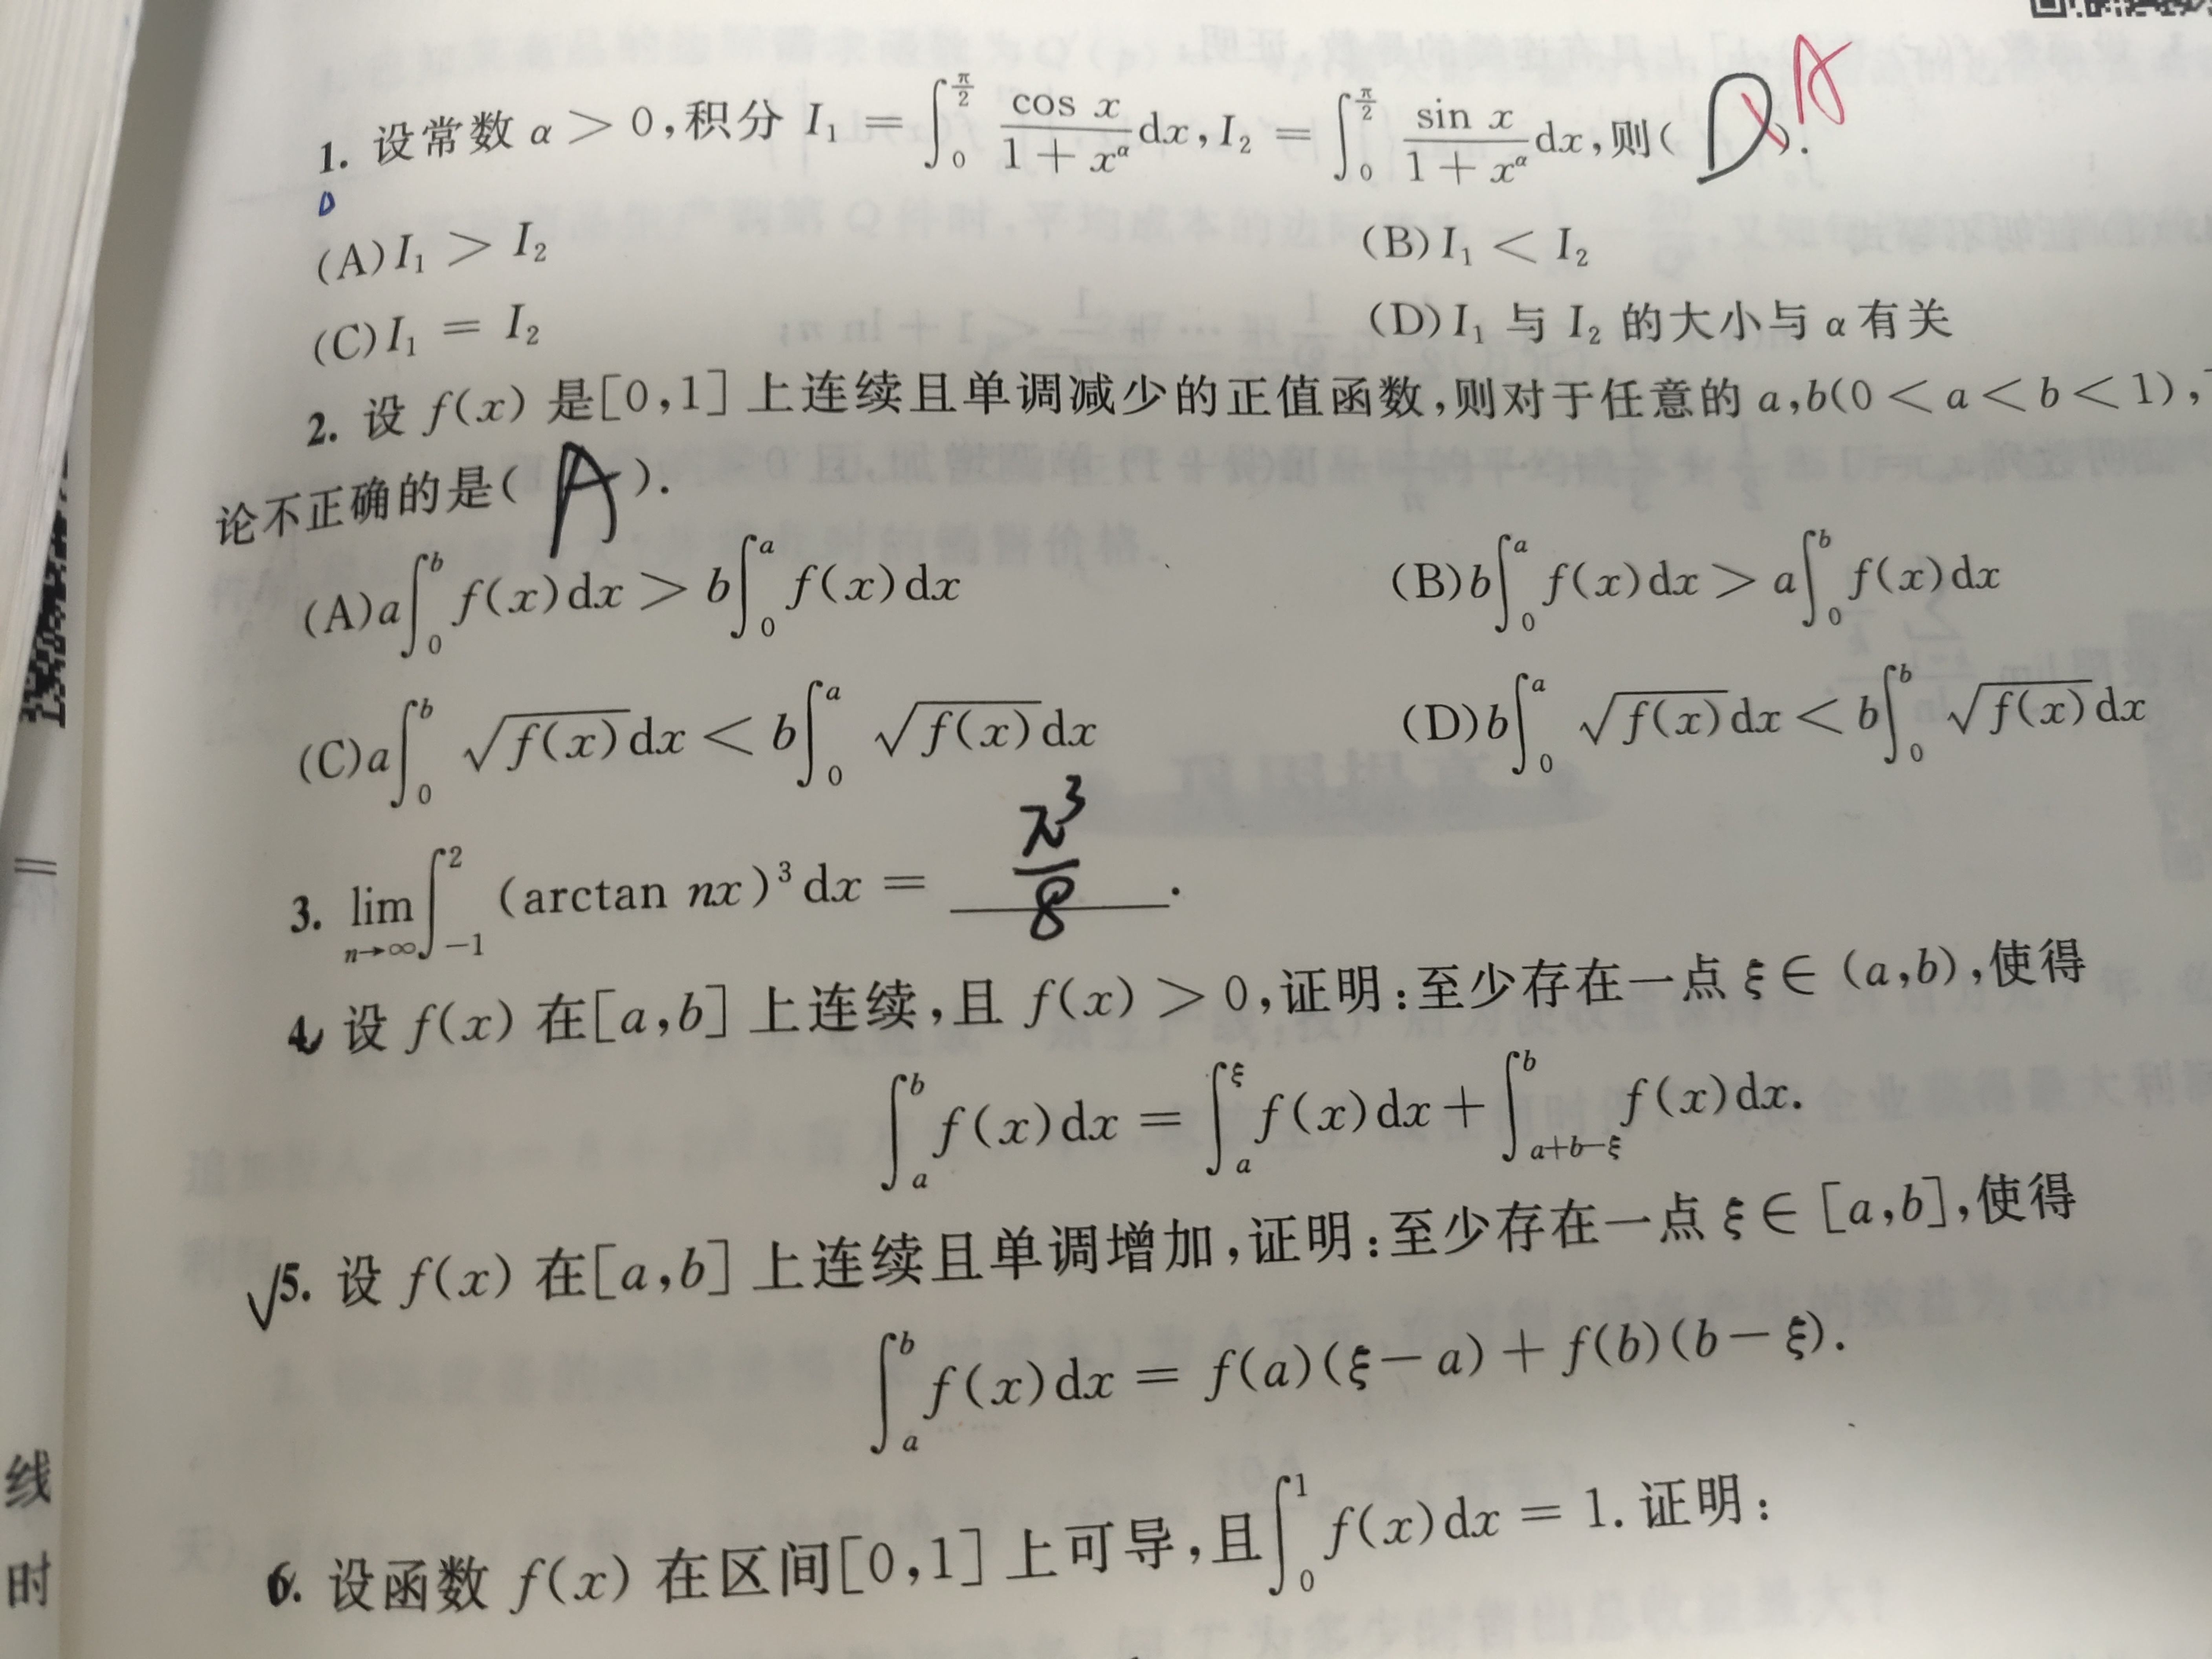 1. 设常数 α > 0,积分 I₁ = ∫₀^{π/2} cos x/(1 + x^α) dx, I₂ = ∫₀^{π/2} sin x/(1 + x^α) dx,则( D ). A
(A) I₁ > I₂ (B) I₁ < I₂
(C) I₁ = I₂ (D) I₁ 与 I₂ 的大小与 α 有关
2. 设 f(x) 是[0,1] 上连续且单调减少的正值函数,则对于任意的 a,b(0 < a < b < 1),
论不正确的是( A ).
(A) a∫₀^b f(x)dx > b∫₀^a f(x)dx (B) b∫₀^a f(x)dx > a∫₀^b f(x)dx
(C) a∫₀^b √f(x) dx < b∫₀^a √f(x) dx (D) b∫₀^a √f(x) dx < b∫₀^b √f(x) dx
3. lim_{n→∞} ∫_{-1}^{2} (arctan nx)³ dx = π³/8 .
4. 设 f(x) 在[a,b] 上连续,且 f(x) > 0,证明:至少存在一点 ξ ∈ (a,b),使得
∫_a^b f(x)dx = ∫_a^ξ f(x)dx + ∫_{a+b-ξ}^b f(x)dx.
√5. 设 f(x) 在[a,b] 上连续且单调增加,证明:至少存在一点 ξ ∈ [a,b],使得
∫_a^b f(x)dx = f(a)(ξ - a) + f(b)(b - ξ).
6. 设函数 f(x) 在区间[0,1] 上可导,且∫₀^1 f(x)dx = 1. 证明:
线
时